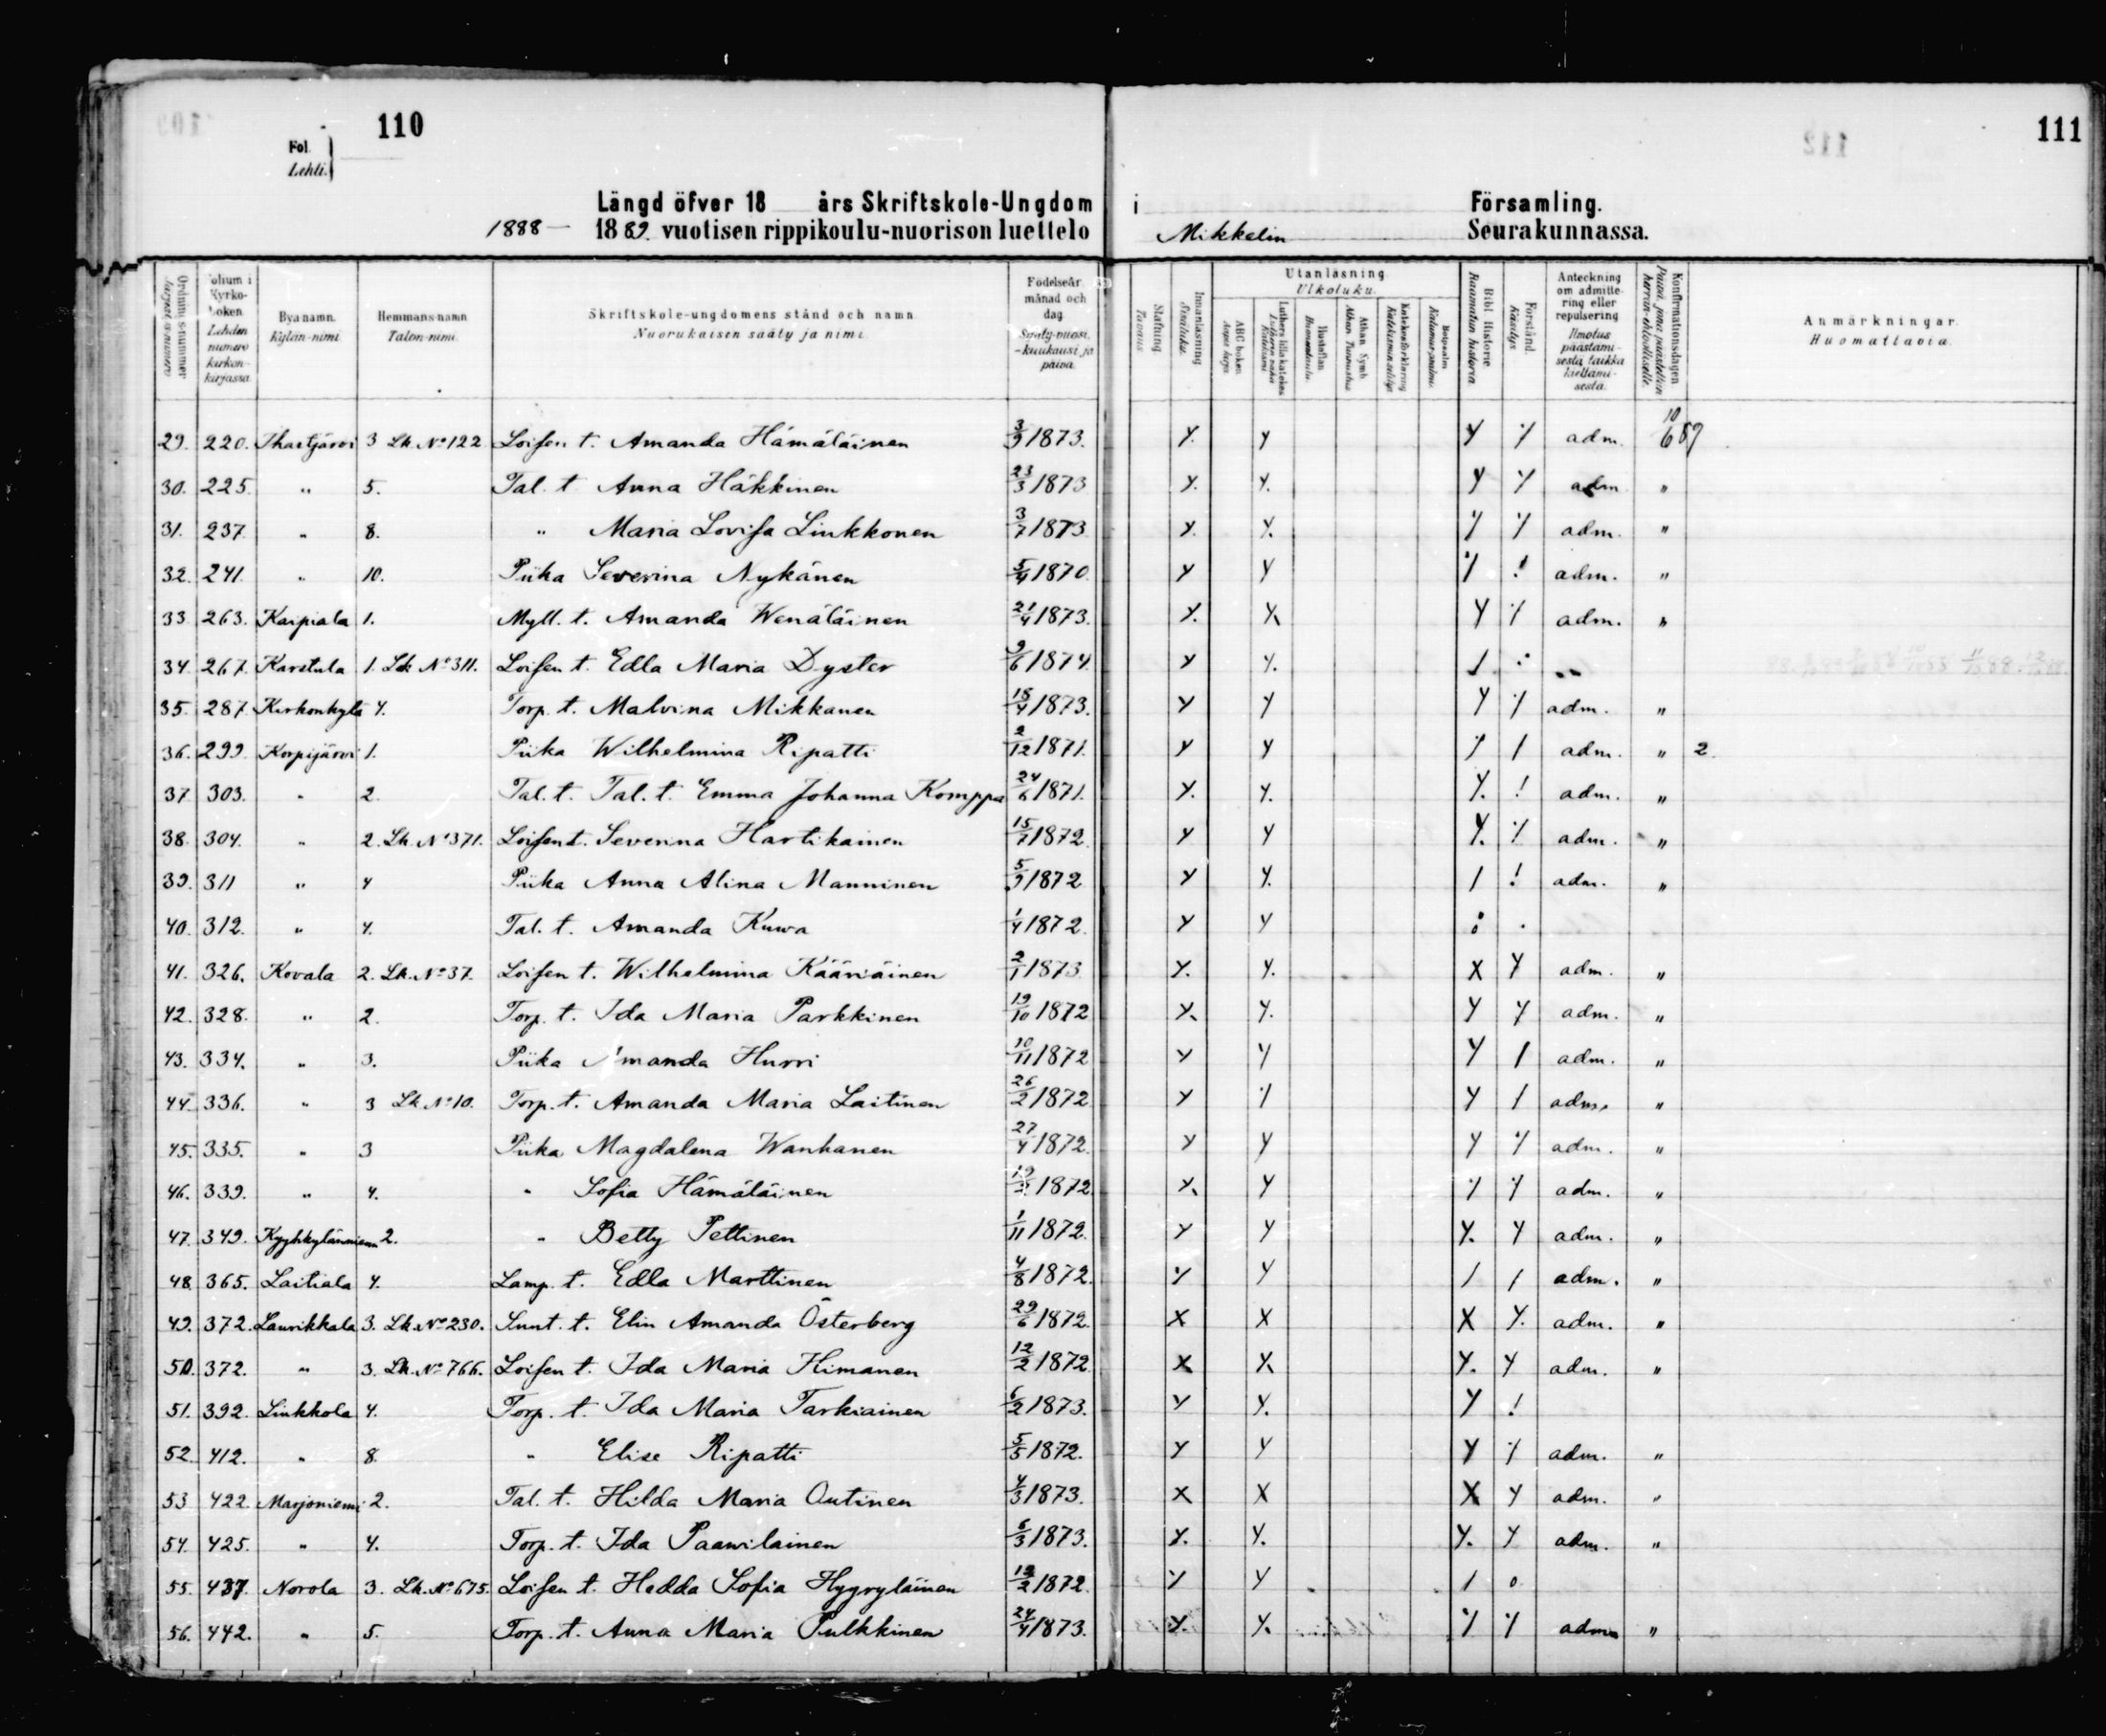 110
Fol.
Lehti.
Längd öfver 18 års Skriftskole-Ungdom
1888 — 1889. vuotisen rippikoulu-nuorison luettelo
111
i Församling.
Mikkelin Seurakunnassa.
Ordnings-nummer
Folium i Kyrko-boken
Lehden numero kirkon-kirjassa
Bya namn.
Kylän-nimi
Hemmans-namn
Talon-nimi.
Skriftskole-ungdomens stånd och namn
Nuorukaisen sääty ja nimi
Födelseår månad och dag
Synty-vuosi, -kuukausi ja päivä.
Stafning
Tavaus
Innanläsning
Sisäluku.
Utanläsning
Ulkoluku.
ABC boken
Luthers lilla katekes
Hustaflan
Huoneentaulu.
Athan. Symb.
Athan. Tunnustus
Katekesförklaring
Katekismin selitys
Botpsalm
Katumus-psalmi.
Bibl. Historie
Raamatun historia
Förstånd.
Käsitys
Anteckning om admittering eller repulsering
Ilmotus päästämisestä taikka kieltämisestä.
Konfirmationsdagen
Päivä, jona päästettiin herran-ehtoolliselle.
Anmärkningar.
Huomattavia.
29. 220. Ihastjärvi 3 Lk. No 122. Loisen t. Amanda Hämäläinen 3/9 1873. Y. Y Y ٪ adm. 10/6 89
30. 225. " 5. Tal. t. Anna Häkkinen 23/3 1873 Y. Y. Y ٪ adm "
31. 237. " 8. " Maria Lovisa Linkkonen 3/7 1873 Y. Y. ٪ ٪ adm. "
32. 241. " 10. Piika Severina Nykänen 5/4 1870. Y Y ٪ ! adm. "
33. 263. Karpiala 1. Myll. t. Amanda Wenäläinen 21/4 1873. Y. Y. Y ٪ adm. "
34. 267. Karstula 1. Lk No 311. Loisen t. Edla Maria Dyster 9/6 1874. Y Y. / :
35. 287. Kirkonkylä 4. Torp. t. Malvina Mikkanen 18/4 1873. Y Y Y ٪ adm. "
36. 299. Korpijärvi 1. Piika Wilhelmina Ripatti 2/12 1871. Y Y ٪ / adm. " 2.
37. 303. " 2. Tal. t. Tal. t. Emma Johanna Komppa 24/6 1871. Y. Y. Y. ! adm. "
38. 304. " 2. Lk. No 371. Loisen t. Severina Hartikainen 15/7 1872 Y Y Y. ٪ adm. "
39. 311 " 4 Piika Anna Alina Manninen 5/9 1872 Y Y. / ! adm. "
40. 312. " 4. Tal. t. Amanda Kuwa 1/4 1872. Y Y : .
41. 326. Kovala 2. Lk. No 37. Loisen t. Wilhelmina Kääriäinen 2/1 1873 Y. Y. X Y adm. "
42. 328. " 2. Torp. t. Ida Maria Parkkinen 19/10 1872 Y. Y. Y Y adm. "
43. 334. " 3. Piika Amanda Hurri 10/11 1872 Y Y Y / adm. "
44. 336. " 3 Lk. No 10. Torp. t. Amanda Maria Laitinen 26/2 1872 Y ٪ Y / adm. "
45. 335. " 3 Piika Magdalena Wanhanen 27/4 1872. Y Y Y ٪ adm. "
46. 339. " 4. " Sofia Hämäläinen 1872 Y. Y ٪ ٪ adm. "
47. 349. Kyyhkylänniemi 2. " Betty Pettinen 1/11 1872. Y Y Y. Y adm. "
48. 365. Laitiala 4. Lamp. t. Edla Marttinen 4/8 1872. ٪ Y / / adm. "
49. 372. Laurikkala 3. Lk. No 230. Sunt. t. Elin Amanda Österberg 29/6 1872. X X X Y. adm. "
50. 372. " 3. Lk. No 766. Loisen t. Ida Maria Himanen 12/2 1872 X Y. Y. Y adm. "
51. 392. Linkkola 4. Torp. t. Ida Maria Tarkiainen 6/2 1873. Y Y. Y !
52. 412. " 8. " Elise Ripatti 5/5 1872. Y Y Y ٪ adm. "
53. 422. Marjoniemi 2. Tal. t. Hilda Maria Outinen 4/3 1873. X X X Y adm. "
54. 425. " 4. Torp. t. Ida Paawilainen 6/3 1873. Y. Y. Y. Y adm. "
55. 437. Norola 3. Lk. No 675. Loisen t. Hedda Sofia Hygryläinen 1872. ٪ Y / o
56. 442. " 5. Torp. t. Anna Maria Pulkkinen 24/4 1873. Y. Y. ٪ ٪ adm. "